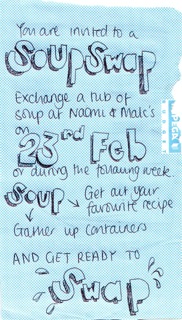 You are invited to a
SOUP SWAP
Exchange a tub of
soup at Naomi & Malc's
on
23rd Feb
or during the following week.
SOUP → Get out your
favourite recipe
Gather up containers
AND GET READY TO
Swap